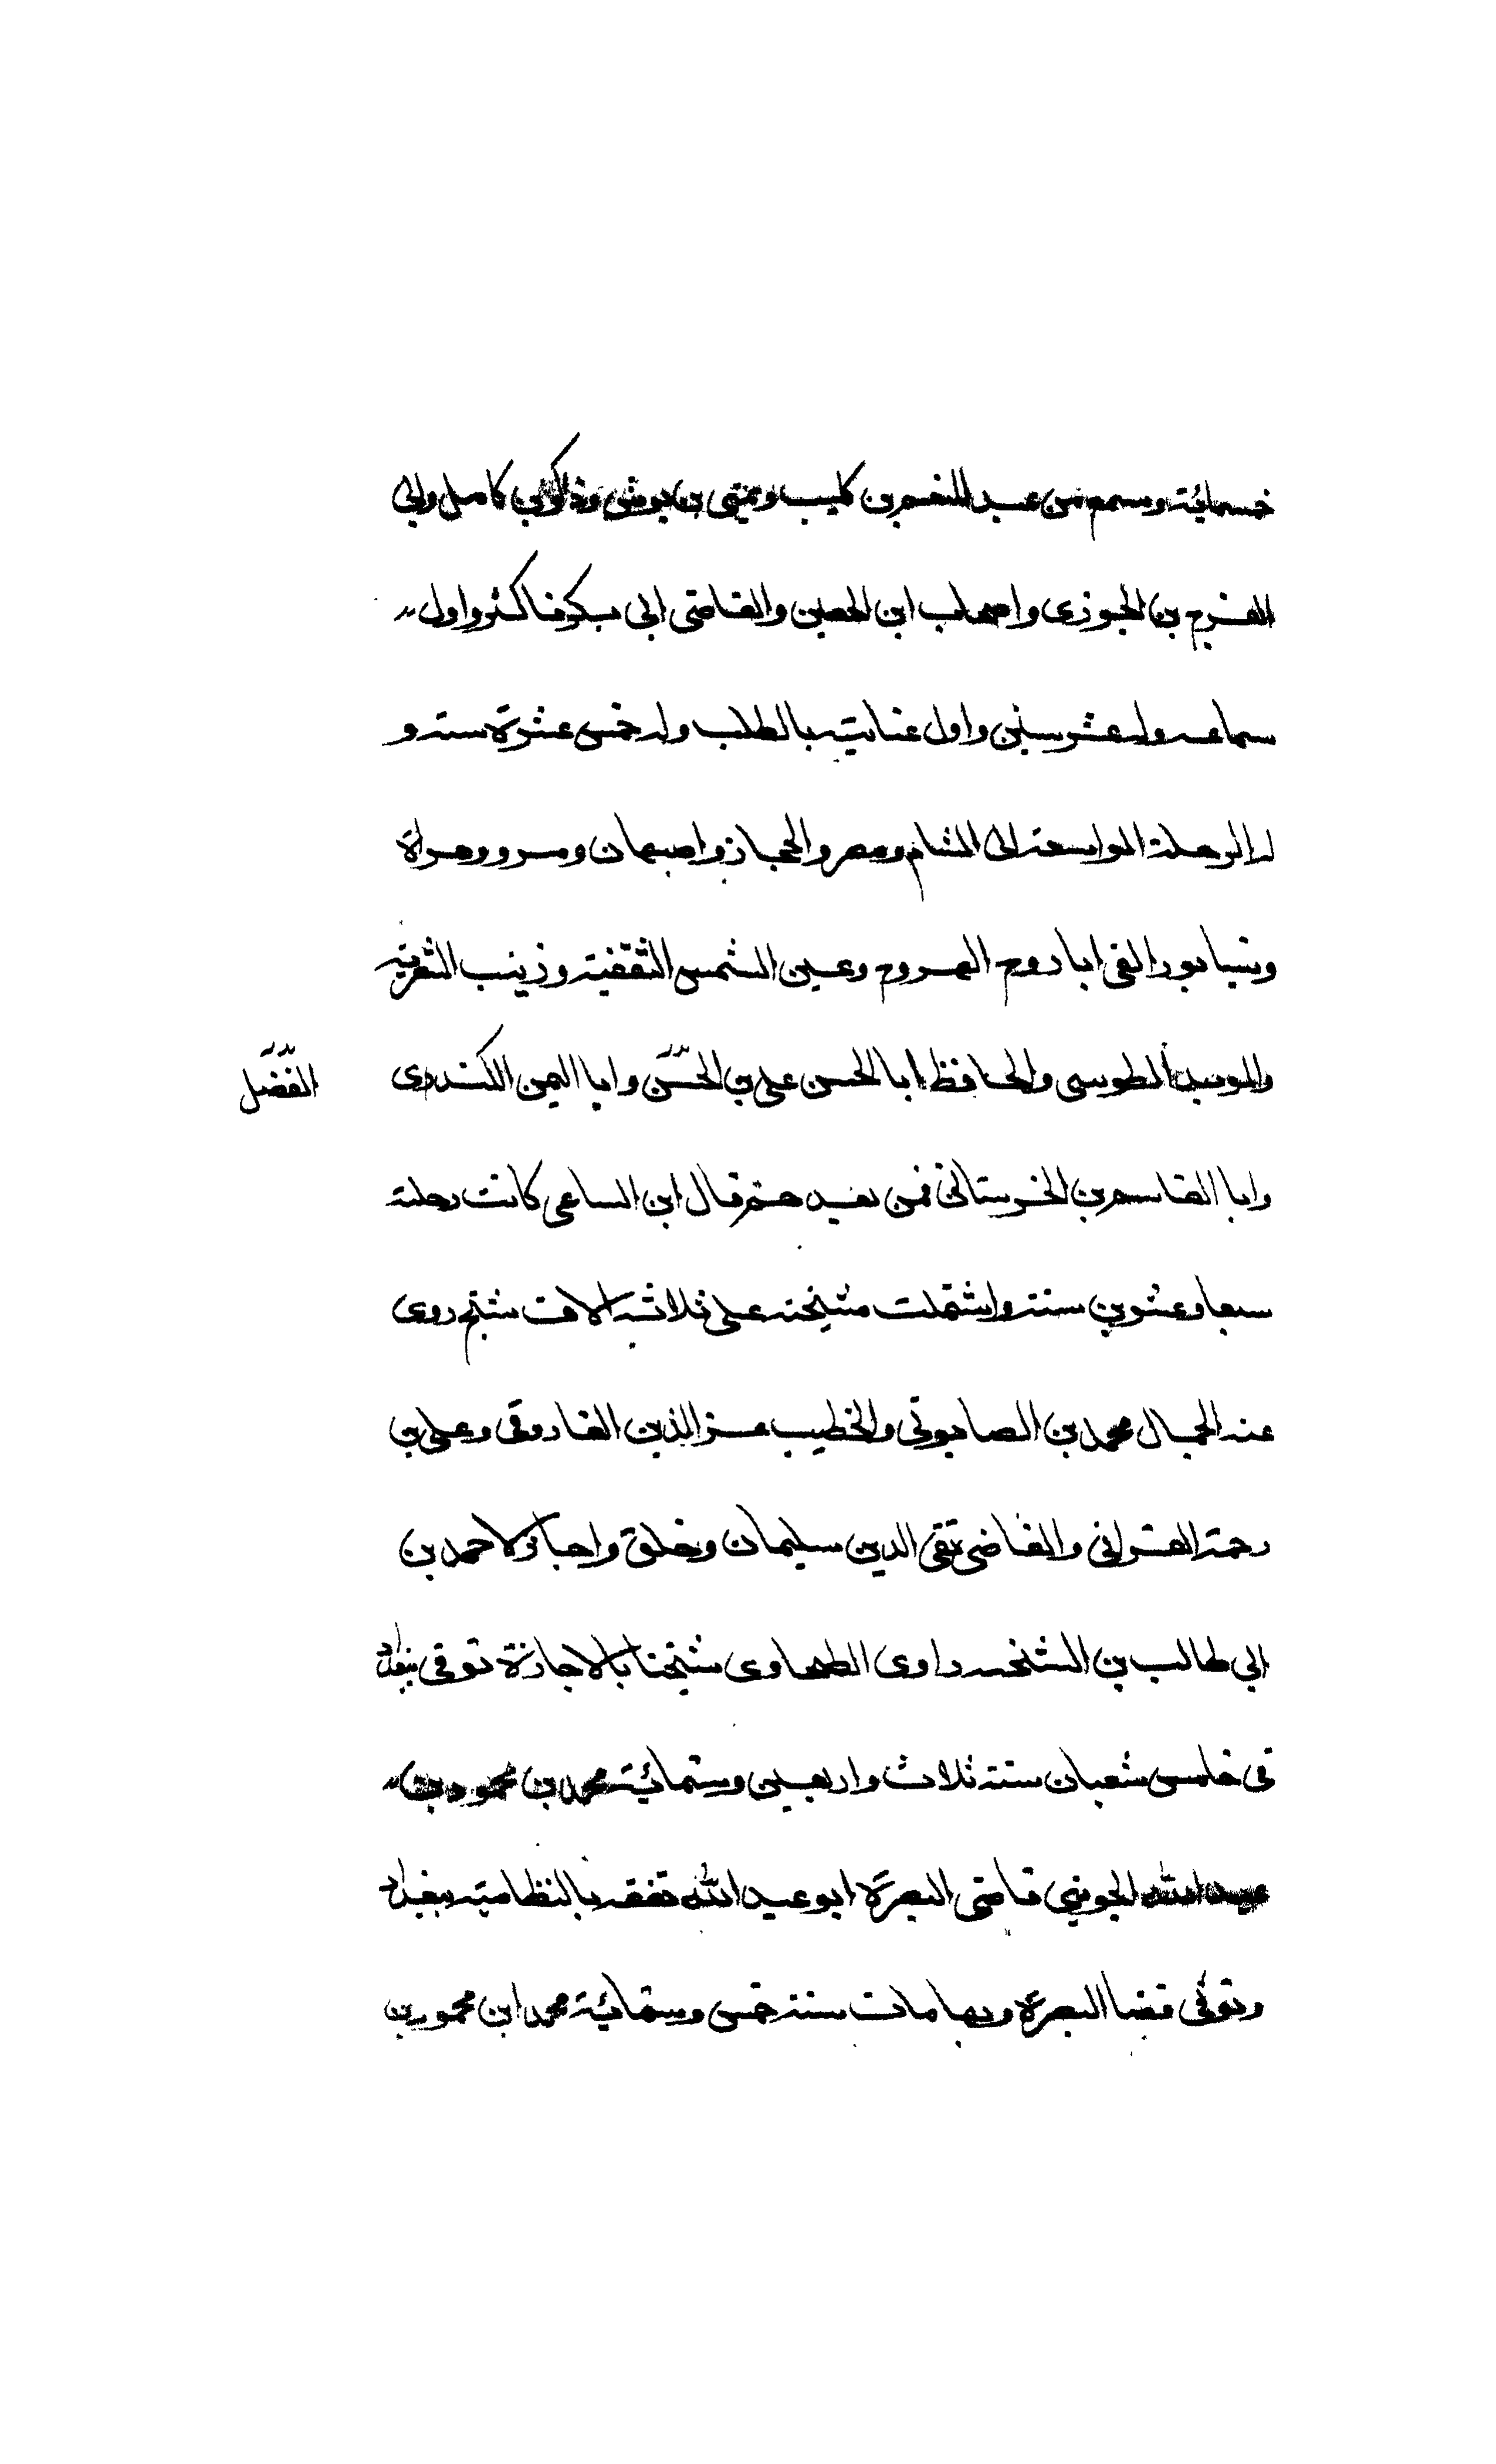 خسمائة وسمع من عبد المنعم بن كليب ويحيى بن بوش وذاكر بن كامل وابى
الفرج بن الجوزى واصحاب ابن الحصين والقاضى ابى بكر فاكثر واول
سماعه وله عشر سنين واول عنايته بالطلب وله خمس عشرة سنة و
له الرحلة الواسعة الى الشام ومصر والحجاز واصبهان ومرو وهراة
ونيسابور القى ابا روح الهروى وعين الشمس الثقفية وزينب الشعرية
والمويد الطوسى والحافظ ابا الحسن على بن الحسن وابا اليمن الكندى
الفضل
وابا القاسم بن الخرستانى فمن بعدهم قال ابن الساعى كانت رحلته
سبعا وعشرين سنة واشتملت مشيخته على ثلاثة الاف شيخ روى
عنه الجمال محمد بن الصابونى والخطيب عز الدين الفاروقى وعلى بن
رحمة القرانى والقاضى تقى الدين سليمان وخلق واجاز لاحمد بن
ابى طالب بن الشخنه راوى الطحاوى شيخنا بالاجازة توفى ببغداد
فى خامس شعبان سنة ثلاث واربعين وستمائة محمد بن محمود بن
عبد الله الجوينى قاضى البصرة ابو عبد الله تفقه بالنظامية ببغداد
وتوفى قضا البصرة وبها مات سنة خمس وستمائة محمد ابن محمود بن